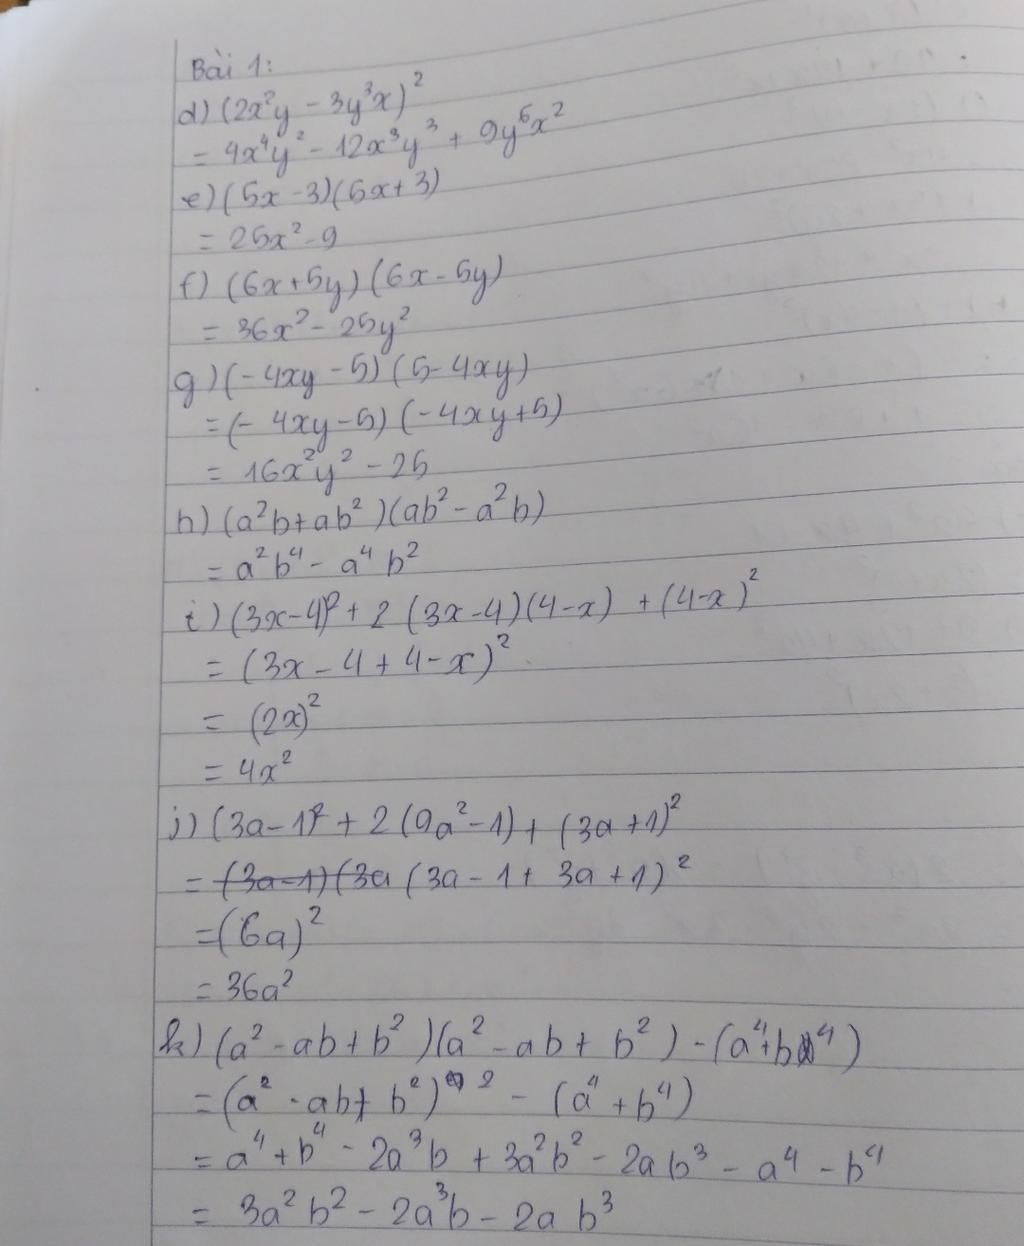 Bài 1:
d) (2x²y - 3y³x)²
= 4x⁴y² - 12x³y³ + 9y⁶x²
e) (5x - 3)(5x + 3)
= 25x² - 9
f) (6x + 5y)(6x - 5y)
= 36x² - 25y²
g) (- 4xy - 5)(5 - 4xy)
= (- 4xy - 5)(- 4xy + 5)
= 16x²y² - 25
h) (a²b + ab²)(ab² - a²b)
= a²b⁴ - a⁴b²
i) (3x - 4)² + 2 (3x - 4)(4 - x) + (4 - x)²
= (3x - 4 + 4 - x)²
= (2x)²
= 4x²
j) (3a - 1)² + 2 (9a² - 1) + (3a + 1)²
= (3a - 1)(3a (3a - 1 + 3a + 1)²
= (6a)²
= 36a²
k) (a² - ab + b²)(a² - ab + b²) - (a⁴ + b⁴)
= (a² - ab + b²)² - (a⁴ + b⁴)
= a⁴ + b⁴ - 2a³b + 3a²b² - 2ab³ - a⁴ - b⁴
= 3a²b² - 2a³b - 2ab³